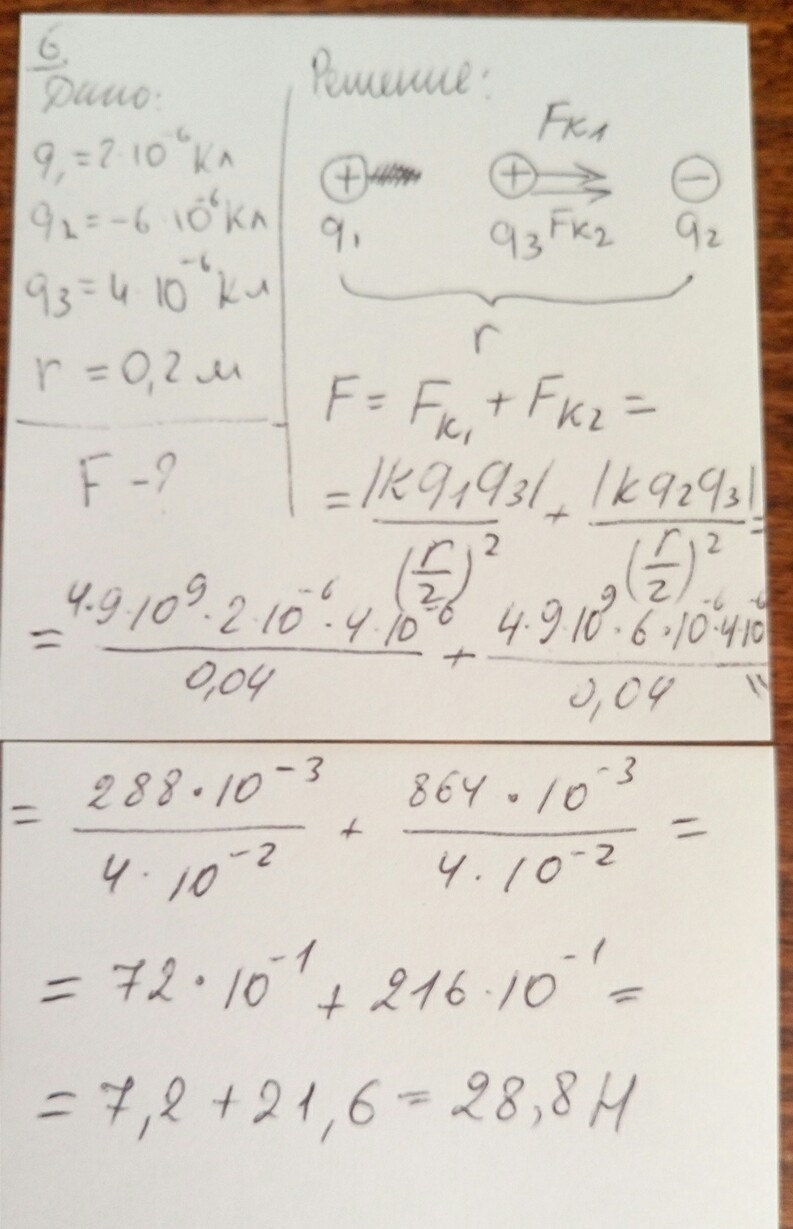 6.
Дано:
q₁ = 2·10⁻⁶ Кл
q₂ = -6·10⁻⁶ Кл
q₃ = 4·10⁻⁶ Кл
r = 0,2 м
F - ?
Решение:
Fк₁
+ + −
q₁ q₃ Fк₂ q₂
r
F = Fк₁ + Fк₂ =
= |kq₁q₃| / (r/2)² + |kq₂q₃| / (r/2)² =
= 4·9·10⁹·2·10⁻⁶·4·10⁻⁶ / 0,04 + 4·9·10⁹·6·10⁻⁶·4·10⁻⁶ / 0,04 =
= 288·10⁻³ / 4·10⁻² + 864·10⁻³ / 4·10⁻² =
= 72·10⁻¹ + 216·10⁻¹ =
= 7,2 + 21,6 = 28,8 Н